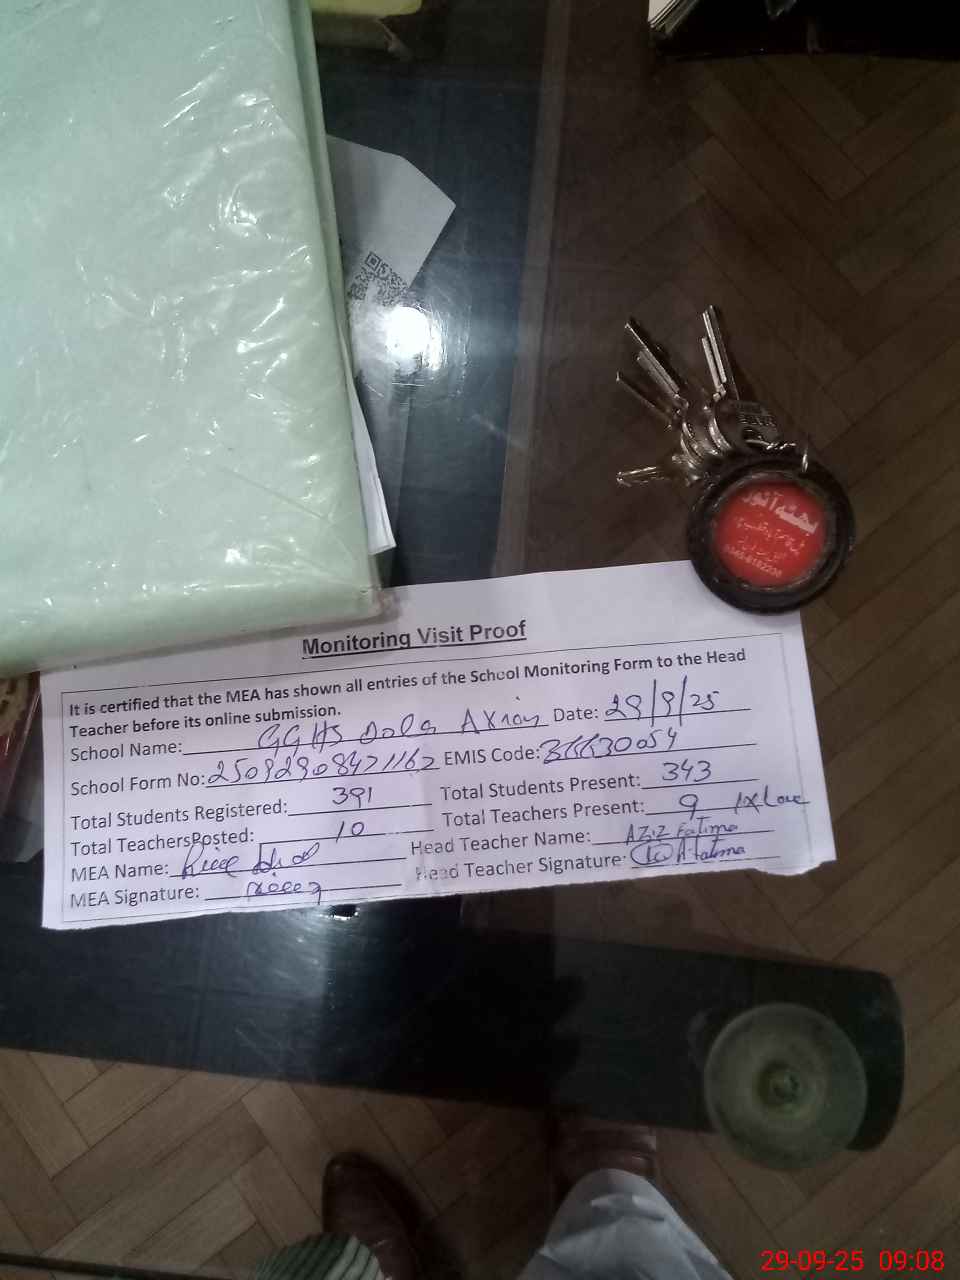 بھٹہ آٹوز
Monitoring Visit Proof
It is certified that the MEA has shown all entries of the School Monitoring Form to the Head
Teacher before its online submission.
School Name: GGHS Date: 29/9/25
School Form No: 250929084271162 EMIS Code: 36630054
Total Students Registered: 391 Total Students Present: 343
Total TeachersPosted: 10 Total Teachers Present: 9
MEA Name: Head Teacher Name: AZiZ Fatima
MEA Signature: Head Teacher Signature: A.fatima
29-09-25 09:08